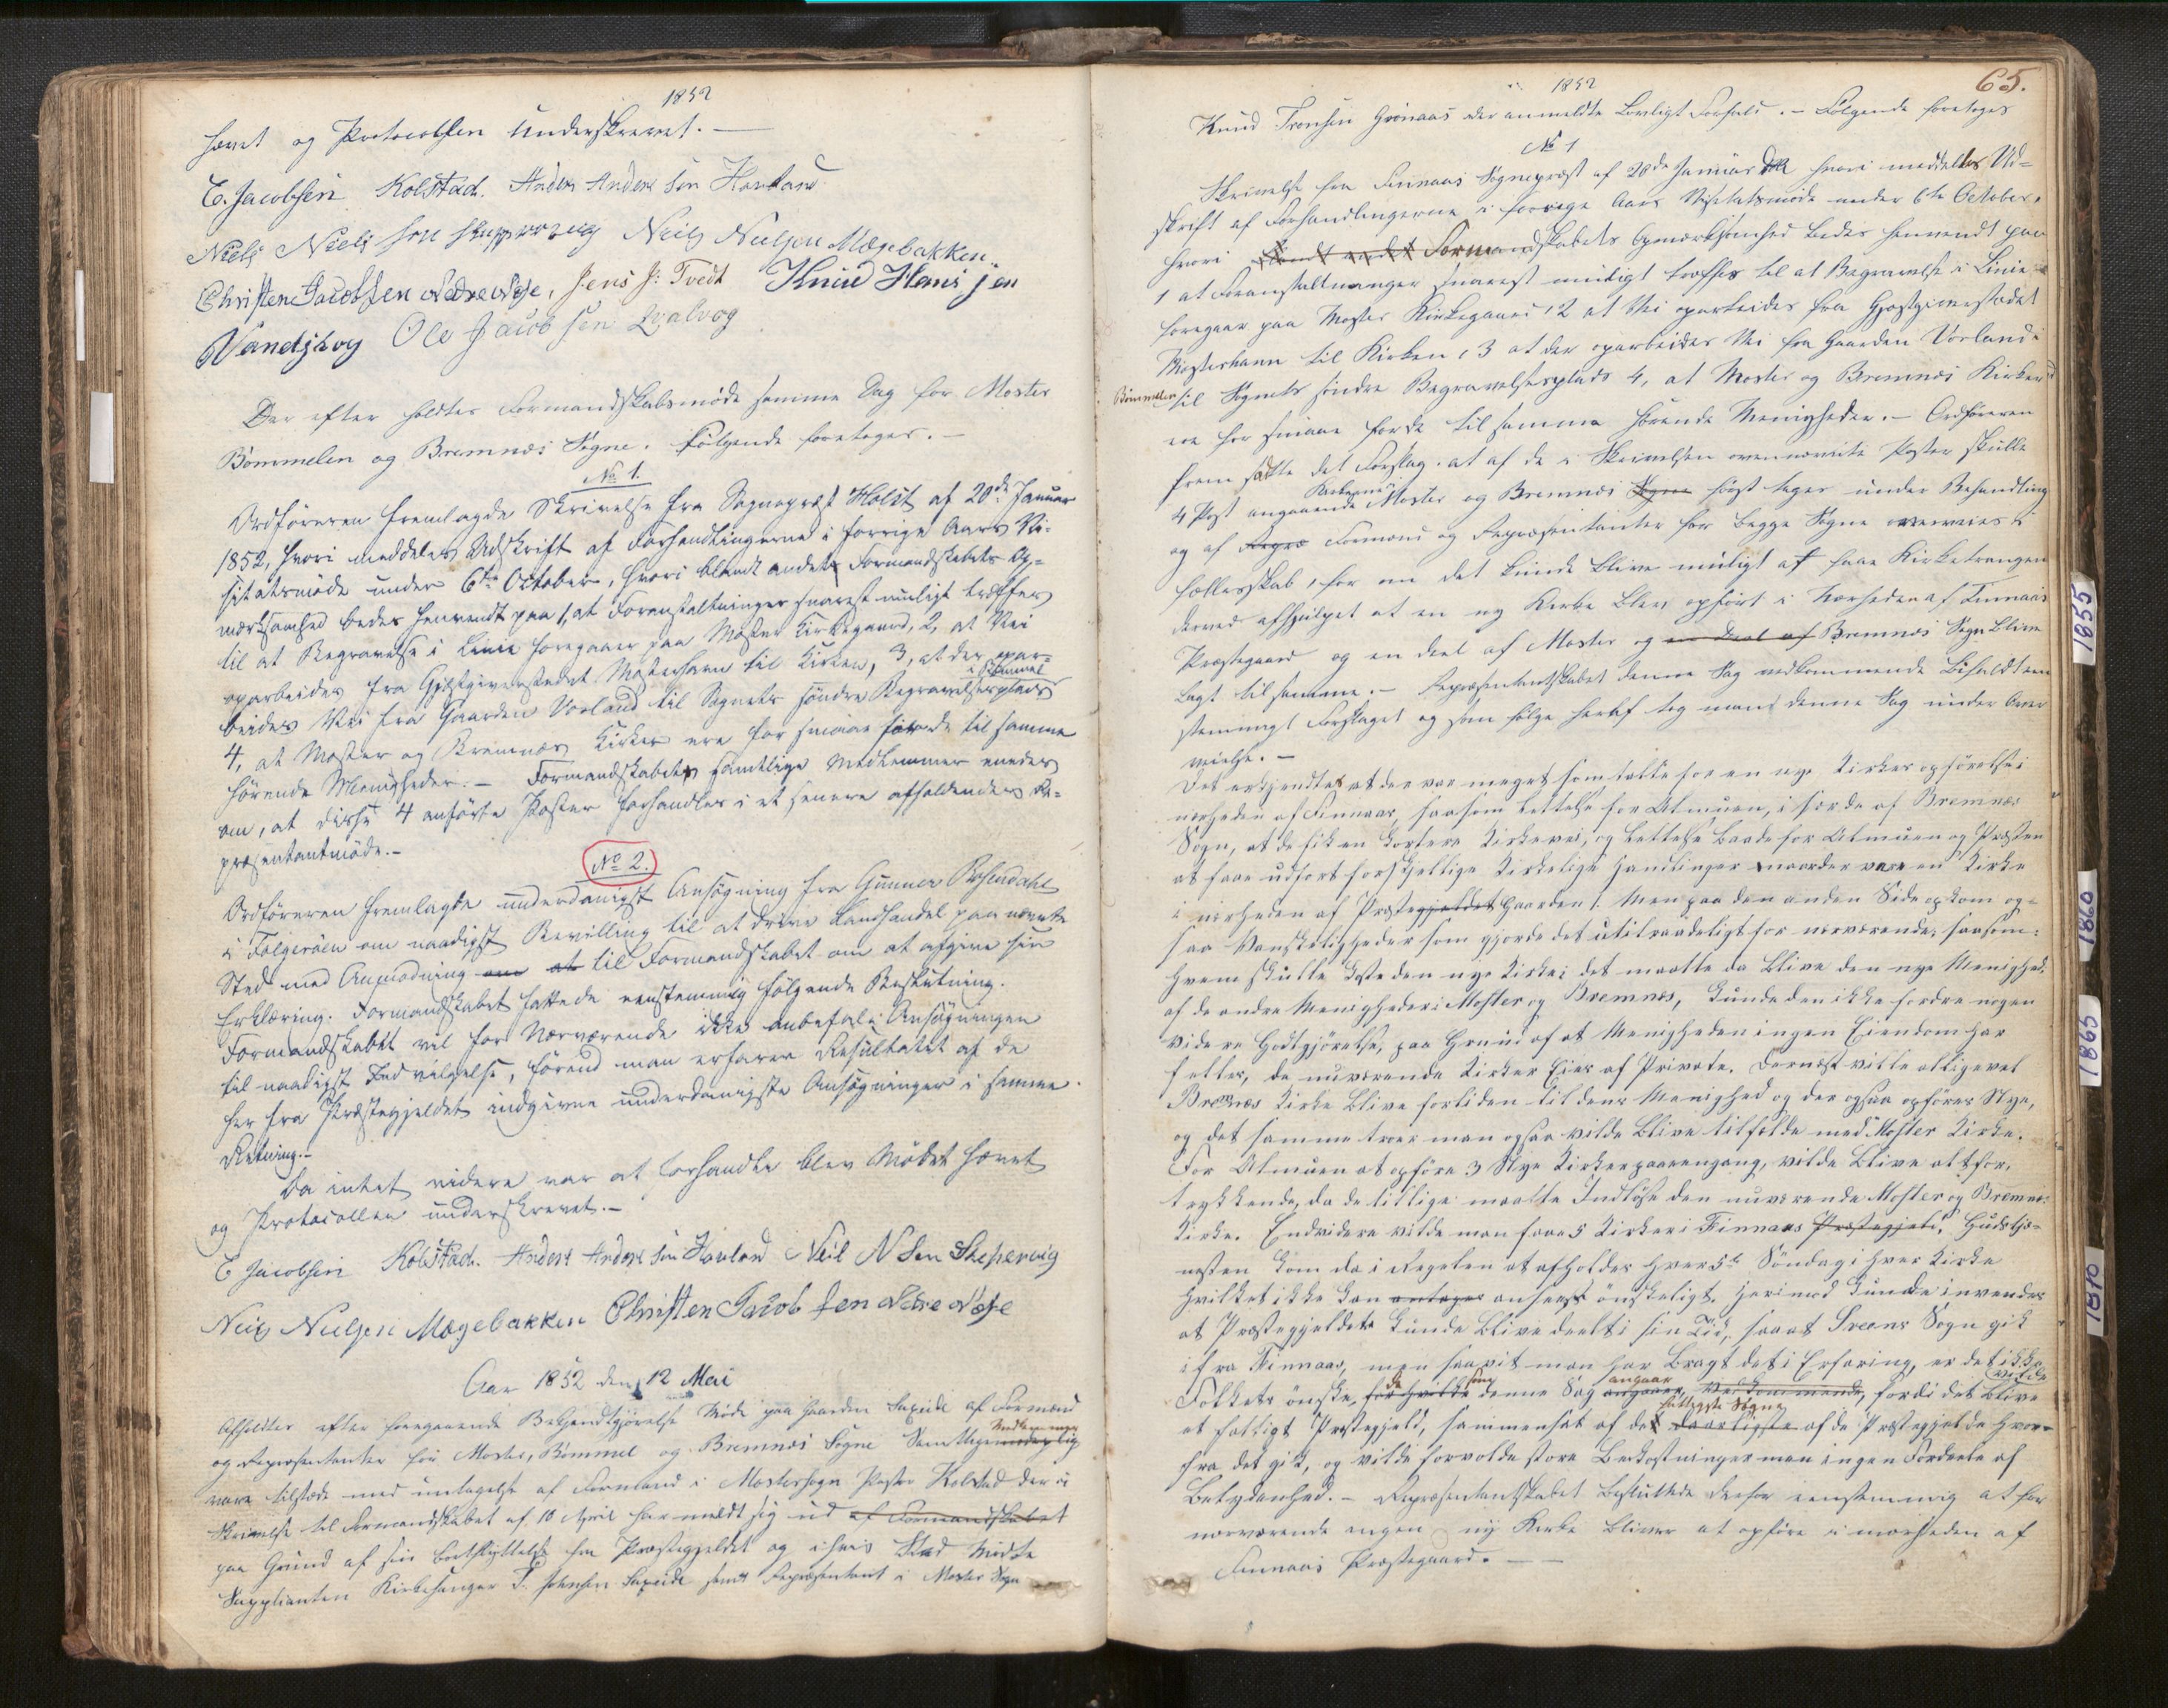 1852
hævet og Protocollen underskrevet. —
E. Jacobsen Kolstad. Anders Anders Søn Hovland
Niels Niels søn Skippervig Neils Neilsen Mægebakken
Christen Jacobsen Nedre Næse, Jens J: Tvedt Knud Hans sen
Vandsvog Ole Jacob sen Qvalvog
Der efter holdtes Formandskabsmøde samme Dag for Moster
Bømmelen og Bremnæs Sogne. Følgende foretoges. —
No 1.
Ordføreren fremlagde Skrivelse fra Sognepræst Holst af 20de Januar
1852, hvori meddeles Udskrift af Forhandlingerne i forrige Aars Vi-
sitatsmøde under 6te October, hvori blandt andet Formandskabets Op-
mærksomhed bedes henvendt paa 1, at Foranstaltninger snarest muligt træffes
til at Begravelse i Linie foregaaer paa Moster Kirkegaard, 2, at Vei
oparbeides fra Gjæstgiverstedet Mosterhavn til Kirken, 3, at der opar-
i Bømmel
beides Vei fra Gaarden Vorland til Sognets søndre Begravelsesplads
4, at Moster og Bremnæs Kirker ere for smaae for de til samme
hørende Menigheder. — Formandskabets samtlige Medlemmer enedes
om, at disse 4 anførte Poster forhandles i et senere afholdendes Re-
præsentantmøde. —
No 2.
Ordføreren fremlagde underdanigst Ansøgning fra Gunner Rosendahl
i Følgerøen om naadigst Bevilling til at drive Landhandel paa nævnte
Sted med Anmodning om at til Formandskabet om at afgive sin
Erklæring. Formandskabet fattede eenstemmig følgende Beslutning.
Formandskabet vil for Nærværende ikke anbefale Ansøgningen
til naadigst Indvilgelse, førend man erfarer Resultatet af de
her fra Præstegjeldet indgivne underdanigste Ansøgninger i samme
Retning. —
Da intet videre var at forhandle blev Mødet hævet
og Protocollen underskrevet. —
E Jacobsen Kolstad. Anders Anders søn Hovland Neil N Sen Skipervig
Neils Neilsen Mægebakken Christen Jacob sen Nedre Næse
Aar 1852 den 12 Mai
Afholdtes efter foregaaende Bekjendtgjørelse Møde paa Gaarden Saxeide af Formænd
Medlemmer
og Repræsentanter for Moster, Bømmel og Bremnæs Sogne Samtlige
vare tilstede med undtagelse af Formand i Mostersogn Kolstad der i
Skrivelse til Formandskabet af 10 April har meldt sig ud af Formandskabet
paa Grund af sin Bortflyttelse fra Præstegjeldet og i hans Sted mødte
Supplianten Kirkesanger T. Johnsen Saxeide samt Repræsentant i Moster Sogn
1852
65.
Knud Tronsen Grønaas der anmeldte Lovligt Forfald. — Følgende foretoges
No 1
Skrivelse fra Finnaas Sognepræst af 20de Januar hvori meddeles Ud-
skrift af Forhandlingerne i forrige Aars Visitatsmøde under 6te October,
hvori blandt andet Formandskabets Opmærksomhed bedes henvendt paa
1 at Foranstaltninger snarest muligt træffes til at Begravelse i Linie
foregaar paa Moster Kirkegaard, 2 at Vei oparbeides fra Gjæstgiverstedet
Mosterhavn til Kirken, 3 at der oparbeides Vei fra Gaarden Vorland i
Bømmelen til Sognets søndre Begravelsesplads 4, at Moster og Bremnæs Kirker
ere for smaae for de til samme hørende Menigheder. — Ordføreren
frem satte det Forslag. at af de i Skrivelsen ovennævnte Poster skulle
Kirkerne
4 Post angaaende Moster og Bremnæs Sogne først tages under Behandling
og af Formænd og Repræsentanter for begge Sogne overveies i
fællesskab, for om det kunde blive muligt at faae Kirketrangen
derved afhjulpet at en ny Kirke blev opført i Nærheden af Finnaas
Præstegaard og en deel af Moster og en Deel af Bremnæs Sogn blive
lagt til samme. — Repræsentantskabet denne Sag vedkommende bifaldt een-
stemmigt Forslaget og som følge heraf tog man denne Sag under Over
veielse. —
Det erkjendtes at der var meget som talte for en nye Kirkes opførelse i
nærheden af Finnaas, saasom Lettelse for Almuen, i sær de af Bremnæs
Sogn, at de fik en kortere Kirkevei, og Lettelse baade for Almuen og Præsten
at faae udført forskjellige Kirkelige Handlinger naar der var en Kirke
i nærheden af Præstegjeldet Gaarden. Men paa den anden Side op kom og-
saa Vanskeligheder som gjorde det utilraadeligt for nærværende, saasom:
Hvem skulle koste den nye Kirke; det maatte da blive den nye Menighed.
af de andre Menigheder: Moster og Bremnes, kunde den ikke fordre nogen
videre Godtgjørelse, paa Grund af at Menigheden ingen Eiendom har
fælles, da nuværende Kirker Eies af Private. Dernæst ville alligevel
Bremnæs Kirke blive for liden til dens Menighed og der ogsaa opføres Nye,
og det samme troer man ogsaa vilde blive tilfælde med Moster Kirke.
For Almuen at opføre 3 Nye Kirker paa eengang, vilde blive alt for,
trykkende, da de tillige maatte Indløse den nuværende Moster og Bremnæs
Kirke. Endvidere vilde man faae 5 Kirker i Finnaas Præstegjeld, Gudstje-
nesten kom da i Regelen at afholdes hver 5te Søndag i hver Kirke
hvilket ikke kan antages ansees ønskeligt. Herimod kunde invendes
at Præstegjeldet kunde blive deelt i sin Tid, saa at Sveens Sogn gik
ifra Finnaas, men saavit man har bragt det i Erfaring, er det ikke
angaar vilde
Folkets ønske, for hvilke denne Sag angaaer, vedkommende, fordi det blive
fattigste Sogne
et fattigt Præstegjeld, sammensat af det daarligste af de Præstegjelde hvor-
fra det gik, og vilde forvolde store Bekostninger men ingen Fordeele af
Betydenhed. — Repræsentantskabet besluttede derfor eenstemmig at for
nærværende ingen ny Kirke bliver at opføre i nærheden af
Finnaas Præstegaard. —
1855
1860
1865
1870